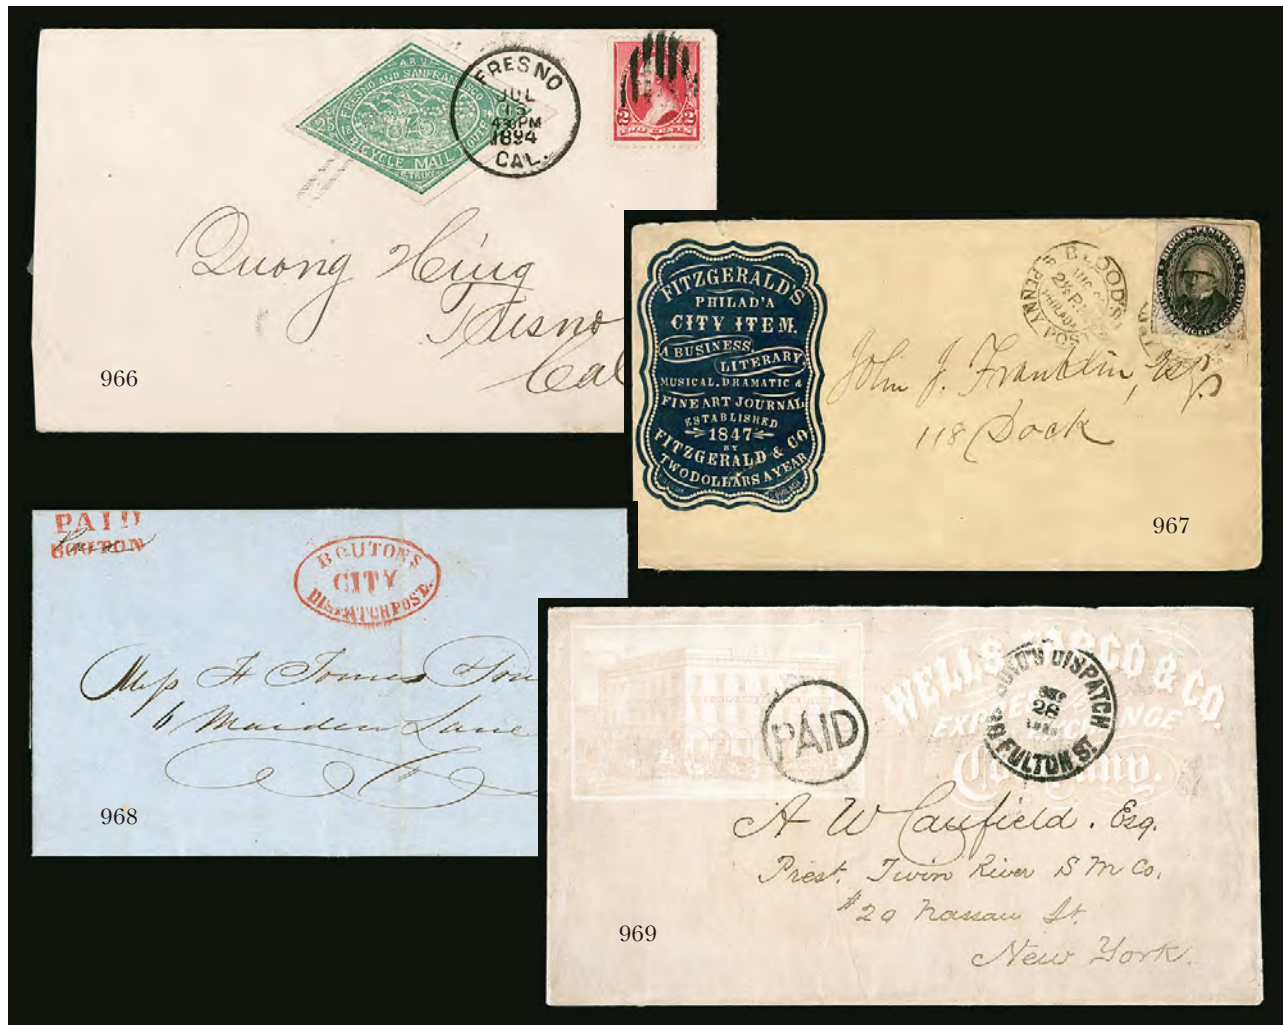 A.R.U.
FRESNO AND SAN FRANCISCO
25 18 94
BICYCLE MAIL ROUTE
STRIKE
FRESNO
JUL
13
430PM
1894
CAL.
2 2
TWO CENTS
Quong Hing
Fresno
Cal
966
FITZGERALD'S
PHILAD'A
CITY ITEM.
A BUSINESS,
LITERARY,
MUSICAL, DRAMATIC &
FINE ART JOURNAL
ESTABLISHED
1847
BY
FITZGERALD & CO
TWO DOLLARS A YEAR
BLOOD'S
PENNY POST
PHILADA
John J. Franklin, Esq.
118 Dock
967
PAID
BOUTON
BOUTON'S
CITY
DISPATCH POST.
Mess H Tomes
6 Maiden Lane
968
WELLS, FARGO & CO.
EXPRESS EXCHANGE
Company.
PAID
BOYD'S DISPATCH
28
FULTON ST
A W Caufield. Esq.
Prest. Twin River S M Co.
#20 Nassau St.
New York.
969